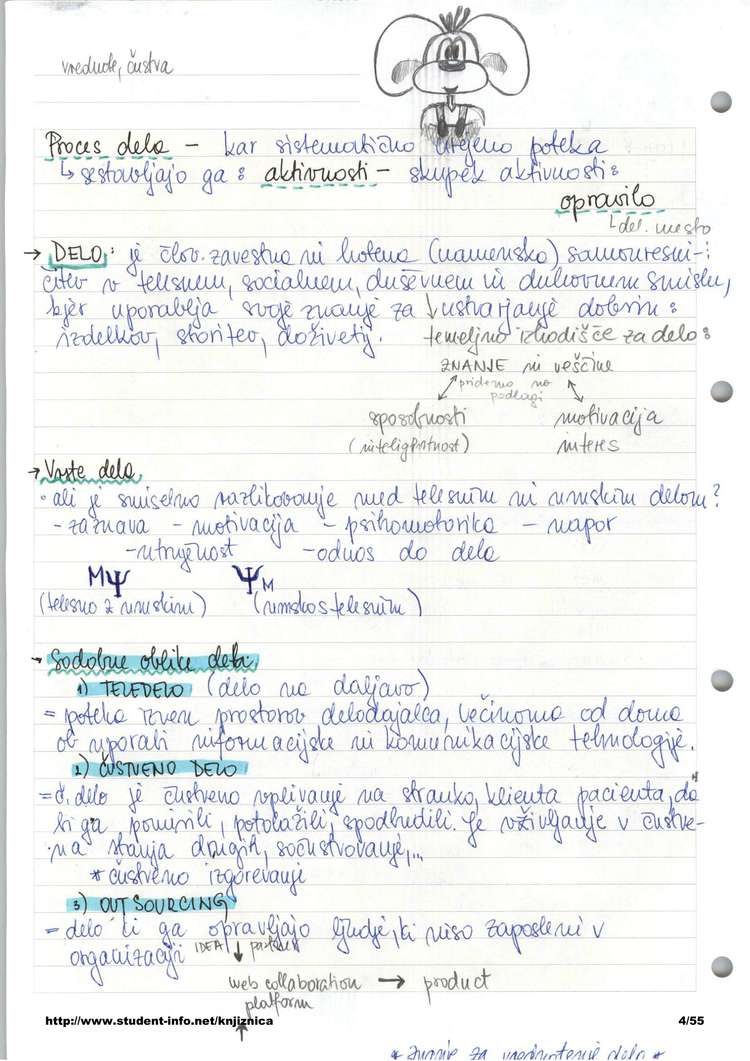 vrednote, čustva
Proces dela – kar sistematično urejeno poteka
↳ sestavljajo ga: aktivnosti – skupek aktivnosti:
opravilo
↳ del. mesto
→ DELO: je člov. zavestna in hotena (namenska) samouresni-
čitev v telesnem, socialnem, duševnem in duhovnem smislu,
kjer uporablja svoje znanje za ↓ ustvarjanje dobrin:
izdelkov, storitev, doživetij. temeljno izhodišče za delo:
ZNANJE in veščine
pridemo na
podlagi
sposobnosti motivacija
(inteligentnost) interes
→ Vrste dela
• ali je smiselno razlikovanje med telesnim in umskim delom?
- zaznava - motivacija - psihomotorika - napor
- utrujenost - odnos do dela
MΨ ΨM
(telesno z umskim) (umsko s telesnim)
→ Sodobne oblike dela:
1) TELEDELO (delo na daljavo)
= poteka izven prostorov delodajalca, večinoma od doma
ob uporabi informacijske in komunikacijske tehnologije.
2) ČUSTVENO DELO
= č. delo je čustveno vplivanje na stranko, klienta, pacienta, da
bi ga pomirili, potolažili, spodbudili. Je vživljanje v čustve-
na stanja drugih, sočustvovanje,...
* čustveno izgorevanje
3) OUTSOURCING
= delo ki ga opravljajo ljudje, ki niso zaposleni v
organizaciji IDEA ↓
web collaboration → product
platform
http://www.student-info.net/knjiznica 4/55
* znanje za vrednotenje dela *